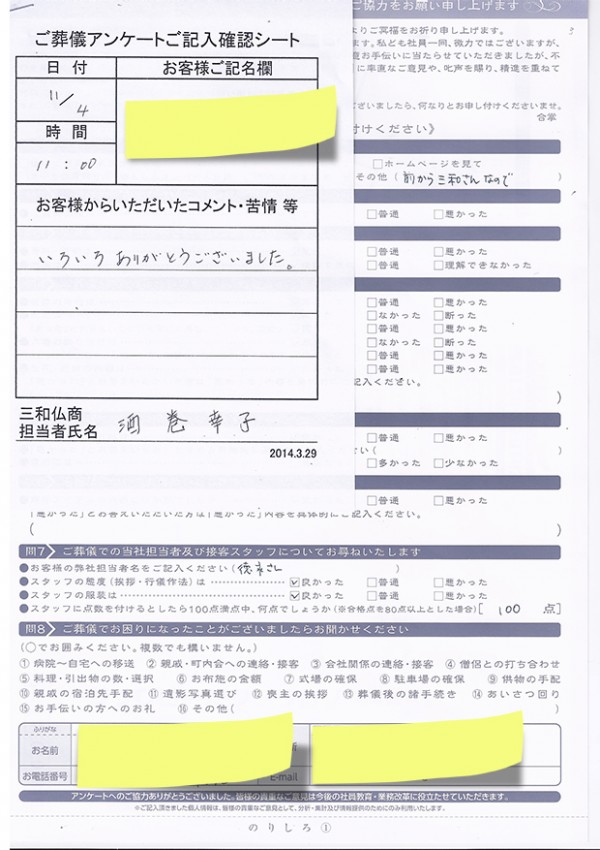 ご葬儀アンケートご記入確認シート
日付
お客様ご記名欄
11/4
時間
11:00
お客様からいただいたコメント・苦情 等
いろいろ ありがとうございました。
三和仏商
担当者氏名 酒巻幸子
2014.3.29
ご協力をお願い申し上げます
よりご冥福をお祈り申し上げます。
ます。私ども社員一同、微力ではございますが、
お手伝いに当たらせていただきましたが、不
に率直なご意見や、叱声を賜り、精進を重ねて
ございましたら、何なりとお申し付けくださいませ。
合掌
付けください》
□ホームページを見て
その他(前から三和さんなので)
□普通 □悪かった
□普通 □悪かった
□普通 □理解できなかった
□普通 □悪かった
□なかった □断った
□普通 □悪かった
□なかった □断った
□普通 □悪かった
□普通 □悪かった
記入ください。
)
□普通 □悪かった
い( )
□多かった □少なかった
□普通 □悪かった
「悪かった」とお答えいただいた方は「悪かった」内容を具体的にご記入ください。
( )
問7 ご葬儀での当社担当者及び接客スタッフについてお尋ねいたします
●お客様の弊社担当者名をご記入ください( さん )
●スタッフの態度(挨拶・行儀作法)は ☑良かった □普通 □悪かった
●スタッフの服装は ☑良かった □普通 □悪かった
●スタッフに点数を付けるとしたら100点満点中、何点でしょうか(※合格点を80点以上とした場合)[ 100 点]
問8 ご葬儀でお困りになったことがございましたらお聞かせください
(○でお囲みください。複数でも構いません。)
①病院〜自宅への移送 ②親戚・町内会への連絡・接客 ③会社関係の連絡・接客 ④僧侶との打ち合わせ
⑤料理・引出物の数・選択 ⑥お布施の金額 ⑦式場の確保 ⑧駐車場の確保 ⑨供物の手配
⑩親戚の宿泊先手配 ⑪遺影写真選び ⑫喪主の挨拶 ⑬葬儀後の諸手続き ⑭あいさつ回り
⑮お手伝いの方へのお礼 ⑯その他( )
ふりがな
お名前
お電話番号
E-mail
アンケートへのご協力ありがとうございました。皆様の貴重なご意見は今後の社員教育・業務改革に役立たせていただきます。
※ご記入頂きました個人情報は、皆様の貴重なご意見として、分析・集計及び情報提供のためにのみ利用いたします。
のりしろ①